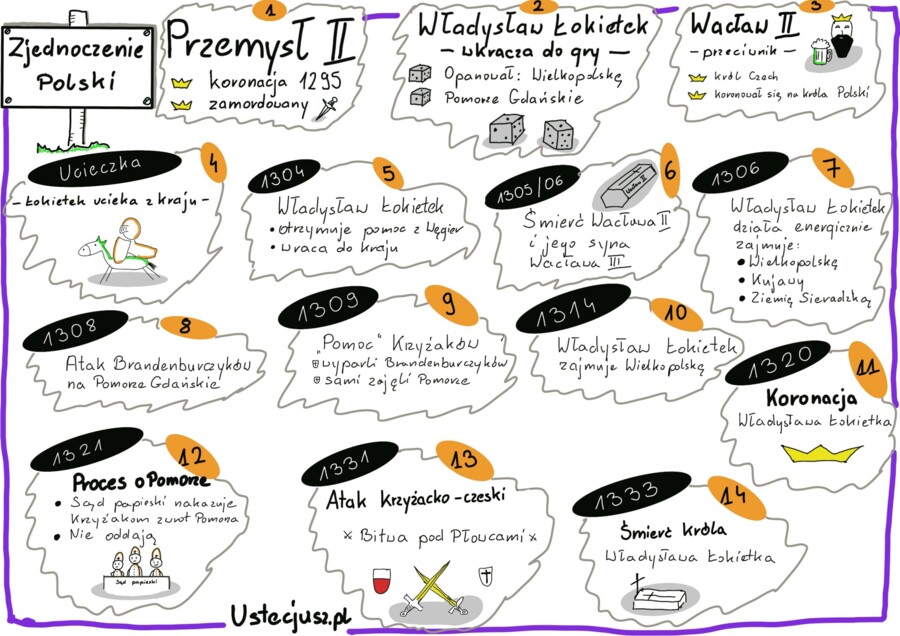 Zjednoczenie
Polski
1
Przemysł II
koronacja 1295
zamordowany
2
Władysław Łokietek
- wkracza do gry -
Opanował: Wielkopolskę
Pomorze Gdańskie
3
Wacław II
- przeciwnik -
król Czech
koronował się na króla Polski
Ucieczka
4
- Łokietek ucieka z kraju -
1304
5
Władysław Łokietek
• otrzymuje pomoc z Węgier
• wraca do kraju
1305/06
6
Wacław II
Śmierć Wacława II
i jego syna
Wacława III
1306
7
Władysław Łokietek
działa energicznie
zajmuje:
• Wielkopolskę
• Kujawy
• Ziemię Sieradzką
1308
8
Atak Brandenburczyków
na Pomorze Gdańskie
1309
9
"Pomoc" Krzyżaków
wyparli Brandenburczyków
sami zajęli Pomorze
1314
10
Władysław Łokietek
zajmuje Wielkopolskę
1320
11
Koronacja
Władysława Łokietka
1321
12
Proces o Pomorze
• Sąd papieski nakazuje
Krzyżakom zwrot Pomorza
• Nie oddają
Sąd papieski
1331
13
Atak Krzyżacko-czeski
x Bitwa pod Płowcami x
1333
14
Śmierć króla
Władysława Łokietka
Ustecjusz.pl